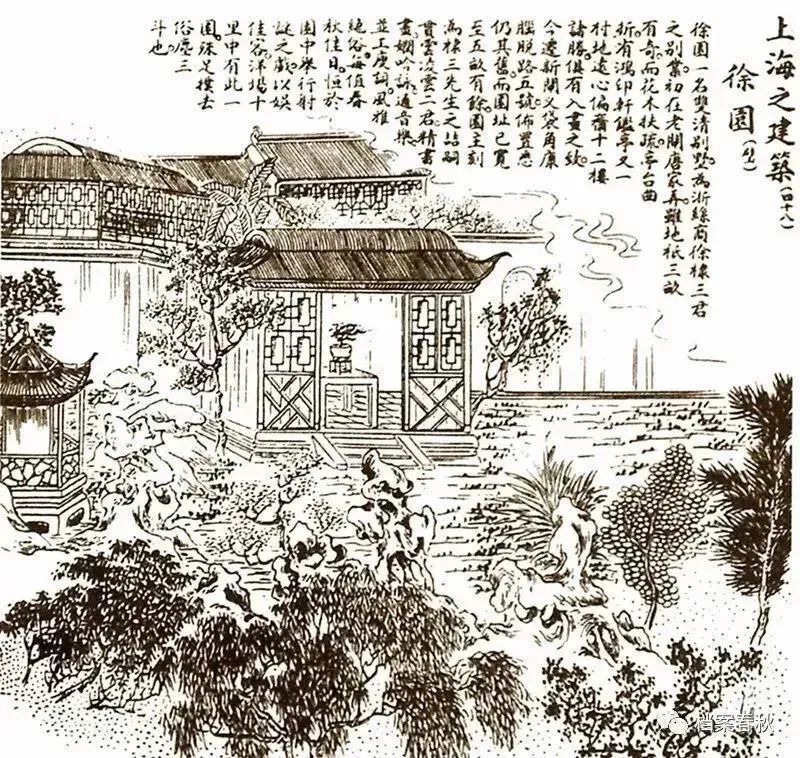 上海之建築(四十八)
徐園(一)
徐園一名雙清別墅。為浙絲商徐棣三君
之別業。初在老閘唐家弄。雖地祗三畝
有奇。而花木扶疏。亭台曲
折。有鴻印軒鑑亭又一
村地遠心偏舊十二樓
諸勝。俱有入畫之致。
今遷新閘又袋角康
腦脫路五號。佈置悉
仍其舊。而園址已寬
至五畝有餘。園主刻
為棣三先生之喆嗣
貫雲凌雲二君。精書
畫。嫻吟詠。通音樂。
並工庾詞。風雅
絕俗。每值春
秋佳日。恒於
園中舉行射
謎之戲以娛
佳客。洋場十
里中有此一
園。殊足撲去
俗塵三
斗也。
档案春秋